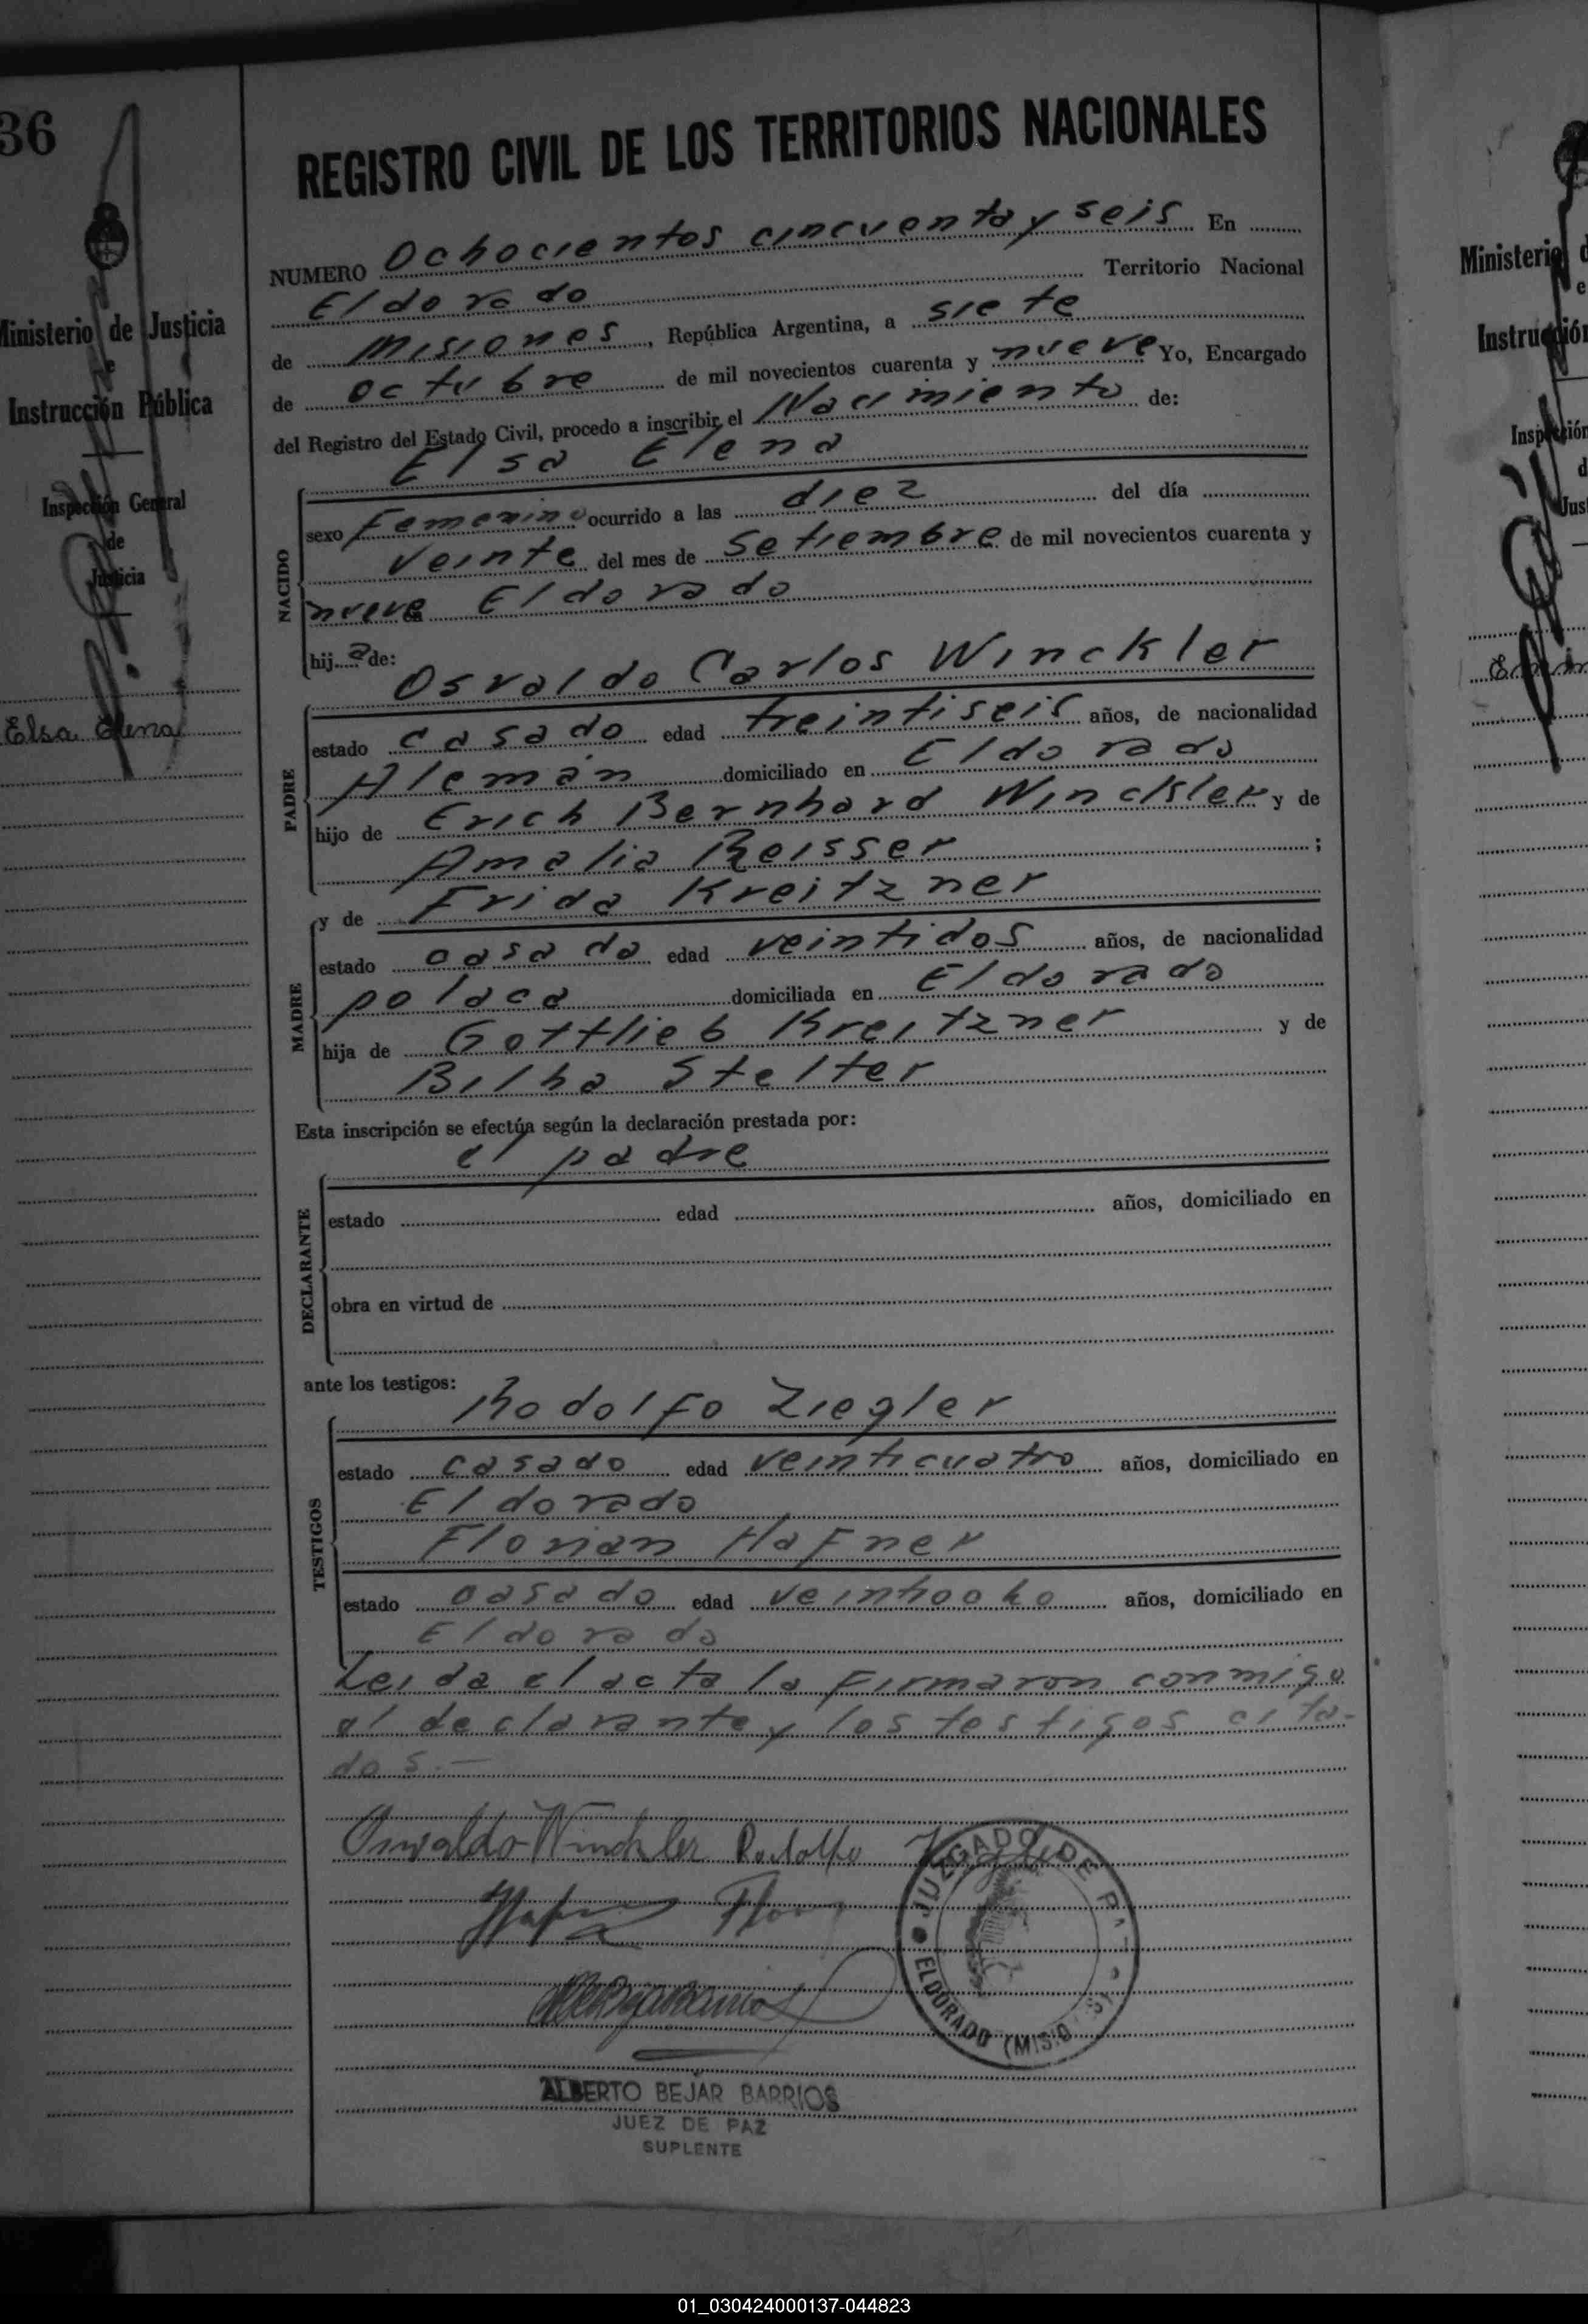 36
Ministerio de Justicia
e
Instrucción Pública
Inspección General
de
Justicia
Elsa Elena
REGISTRO CIVIL DE LOS TERRITORIOS NACIONALES
NUMERO Ochocientos cincuenta y seis En
Eldorado Territorio Nacional
de Misiones, República Argentina, a siete
de octubre de mil novecientos cuarenta y nueve Yo, Encargado
del Registro del Estado Civil, procedo a inscribir el Nacimiento de:
Elsa Elena
NACIDO
sexo femenino ocurrido a las diez del día
veinte del mes de Setiembre de mil novecientos cuarenta y
nueve en Eldorado
hija de:
Osvaldo Carlos Winckler
PADRE
estado casado edad treintiseis años, de nacionalidad
Alemán domiciliado en Eldorado
hijo de Erich Bernhard Winckler y de
Amalia Reisser ;
y de Frida Kreitzner
MADRE
estado casada edad veintidos años, de nacionalidad
polaca domiciliada en Eldorado
hija de Gottlieb Kreitzner y de
Bilha Stelter
Esta inscripción se efectúa según la declaración prestada por:
el padre
DECLARANTE
estado edad años, domiciliado en
obra en virtud de
ante los testigos:
Rodolfo Ziegler
TESTIGOS
estado casado edad veinticuatro años, domiciliado en
Eldorado
Florian Hafner
estado casado edad veintiocho años, domiciliado en
Eldorado
Leida el acta la firmaron conmigo
el declarante y los testigos cita-
dos.—
Oswaldo Winckler Rodolfo
Hafner Florian
JUZGADO DE PAZ
ELDORADO (MISIONES)
ALBERTO BEJAR BARRIOS
JUEZ DE PAZ
SUPLENTE
Ministerio
Instrucción
01_030424000137-044823